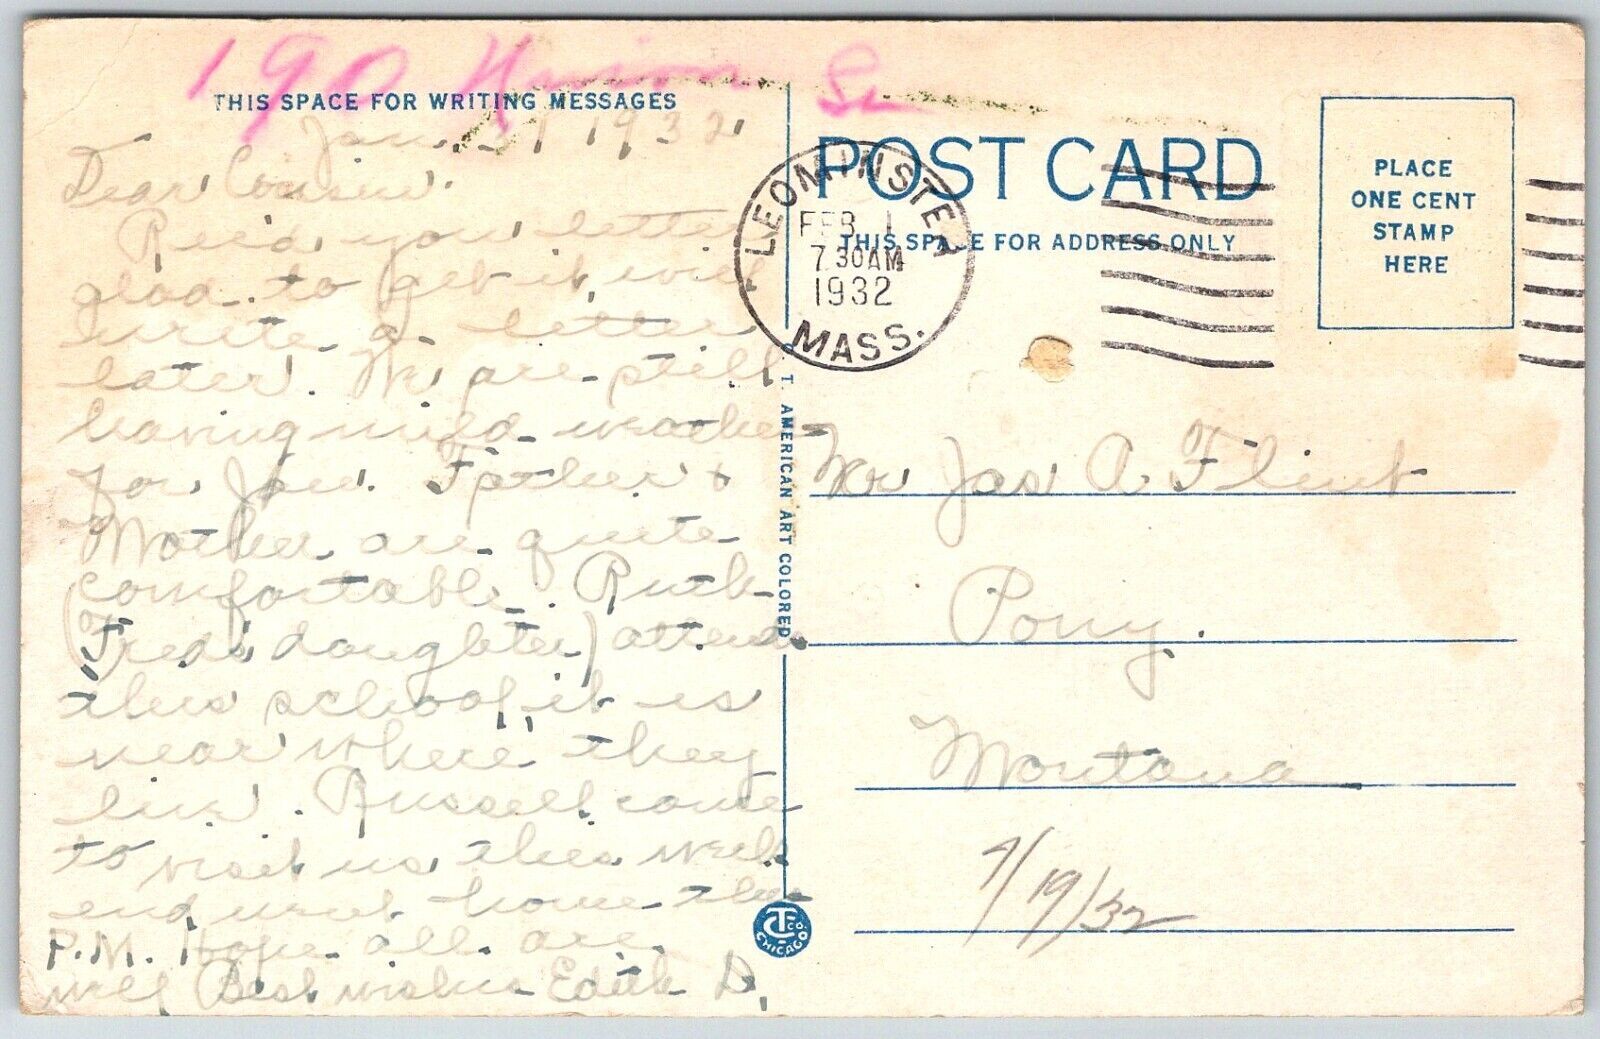 190
THIS SPACE FOR WRITING MESSAGES
Jan. 31 1932
Dear Cousin.
Rec'd your letter
glad to get it, will
write a letter
later. We are still
having mild weather
for Jan. Father +
Mother are quite
comfortable. Ruth
(Fred's daughter) attends
this school, it is
near where they
live. Russell came
to visit us this week
end went home this
P.M. Hope all are
well Best wishes Edith D.
POST CARD
THIS SPACE FOR ADDRESS ONLY
PLACE
ONE CENT
STAMP
HERE
LEOMINSTER
FEB 1
7 30AM
1932
MASS.
Mr Jas A Flint
Pony.
Montana
7/19/32
C. T. AMERICAN ART COLORED
CT CO.
CHICAGO